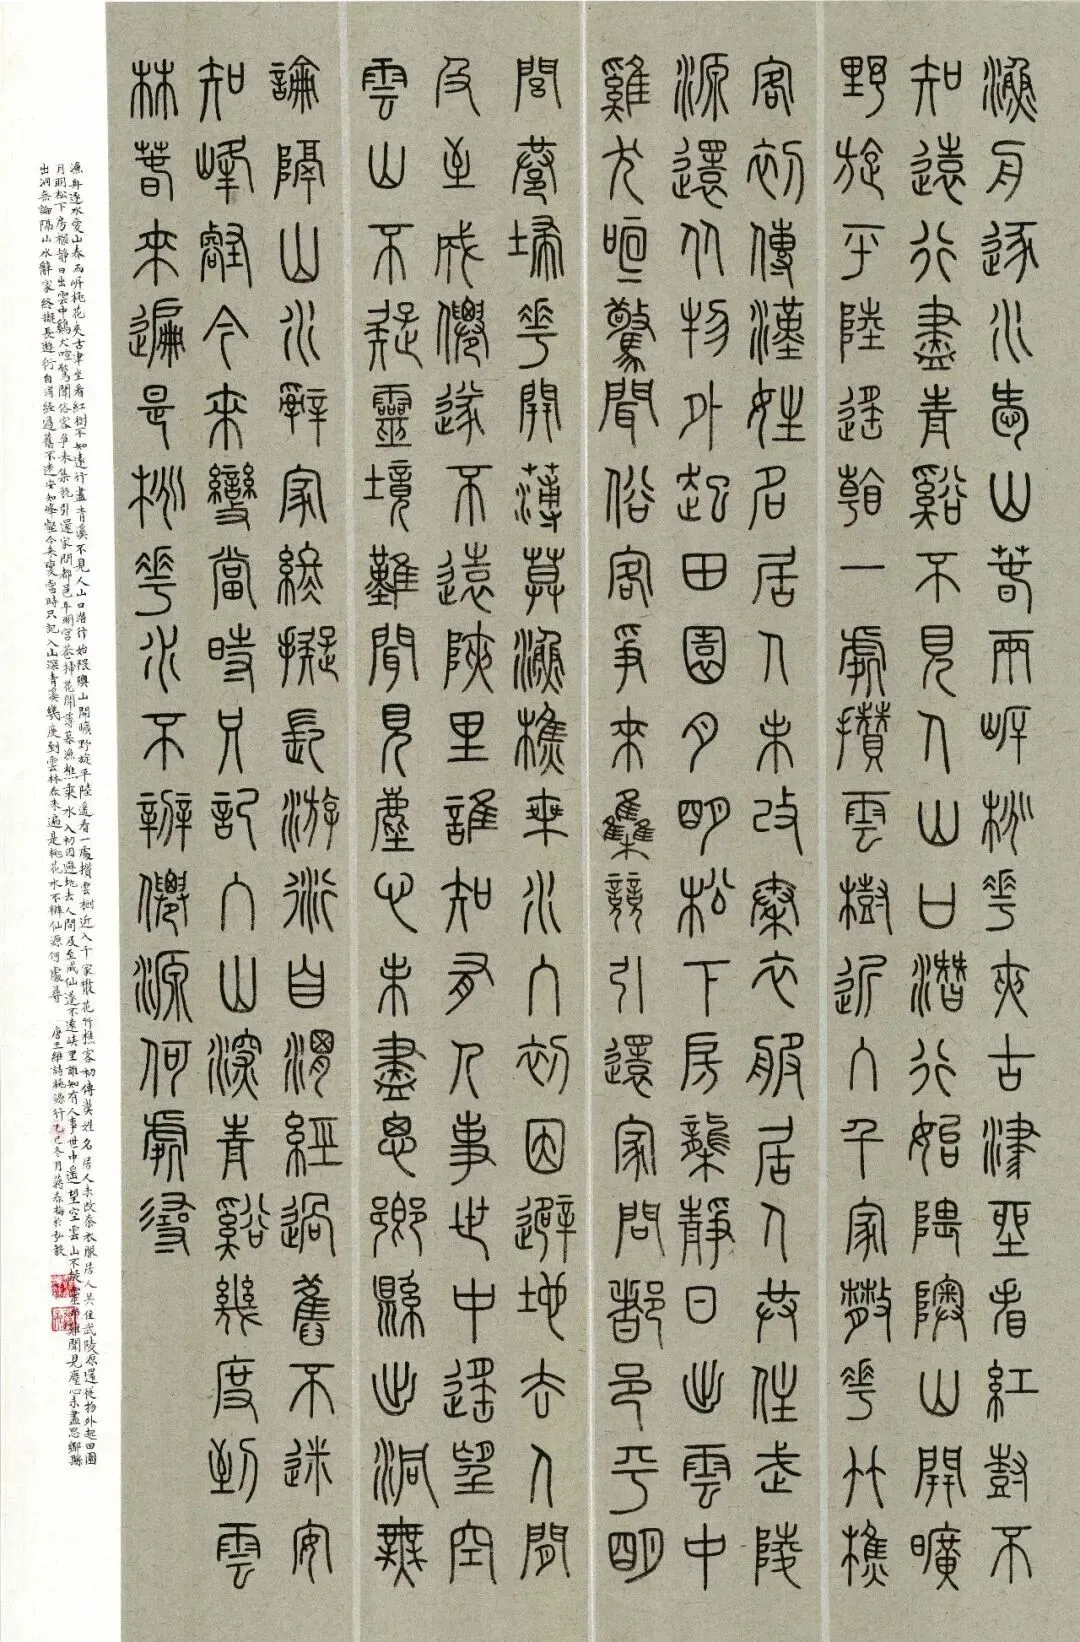 漁舟逐水愛山春兩岸桃花夾古津坐看紅樹不
知遠行盡青谿不見人山口潛行始隈隩山開曠
野旋平陸遙看一處攢雲樹近入千家散花竹樵
客初傳漢姓名居人未改秦衣服居人共住武陵
源還從物外起田園月明松下房櫳靜日出雲中
雞犬喧驚聞俗客爭來集競引還家問都邑平明
閭巷掃花開薄暮漁樵乘水入初因避地去人間
及至成僊遂不遠陝里誰知有人事世中遙望空
雲山不疑靈境難聞見塵心未盡思鄉縣出洞無
論隔山水辭家終擬長游衍自謂經過舊不迷安
知峰壑今來變當時只記入山深青谿幾度到雲
林春來遍是桃花水不辨僊源何處尋
漁舟逐水愛山春兩岸桃花夾古津坐看紅樹不知遠行盡青溪不見人山口潛行始隈隩山開曠野旋平陸遙看一處攢雲樹近入千家散花竹樵客初傳漢姓名居人未改秦衣服居人共住武陵源還從物外起田園
月明松下房櫳靜日出雲中鷄犬喧驚聞俗客爭來集競引還家問都邑平明閭巷掃花開薄暮漁樵乘水入初因避地去人間及至成仙遂不遠峽里誰知有人事世中遙望空雲山不疑靈境難聞見塵心未盡思鄉縣
出洞無論隔山水辭家終擬長遊衍自謂經過舊不迷安知峰壑今來變當時只記入山深青溪幾度到雲林春來遍是桃花水不辨仙源何處尋 唐王維詩桃源行乙巳冬月蔣春梅於弘毅